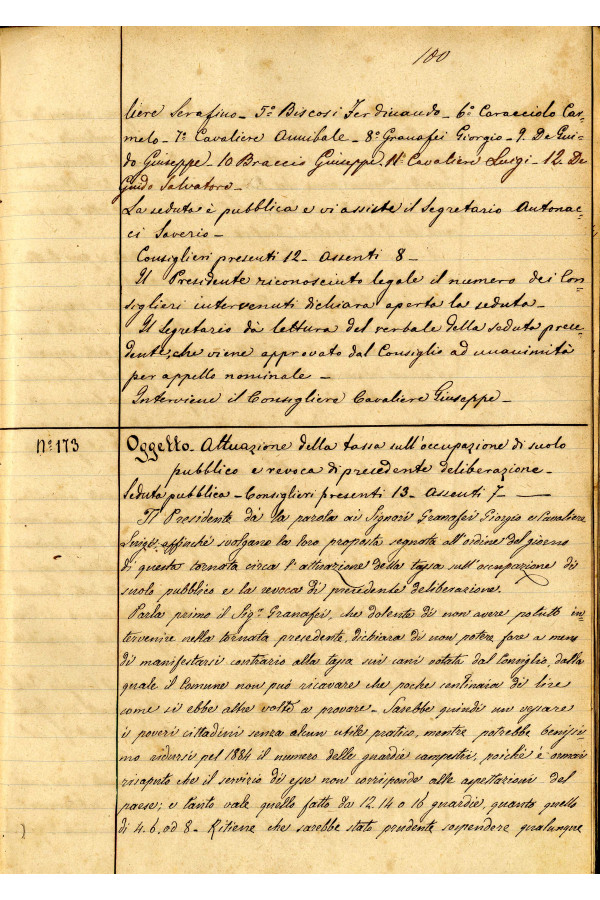 100
liere Serafino - 5º Biscosi Ferdinando - 6º Caracciolo Car-
melo - 7º Cavaliere Annibale - 8º Granafei Giorgio - 9. De Gui-
do Giuseppe - 10 Braccio Giuseppe. 11º Cavalieri Luigi - 12. De
Guido Salvatore -
La seduta è pubblica e vi assiste il Segretario Autonac-
ci Saverio -
Consiglieri presenti 12 - Assenti 8 -
Il Presidente riconosciuto legale il numero dei Con-
siglieri intervenuti dichiara aperta la seduta -
Il Segretario dà lettura del verbale della seduta prece-
dente, che viene approvato dal Consiglio ad unanimità
per appello nominale -
Interviene il Consigliere Cavaliere Giuseppe -
Nº 173
Oggetto - Attuazione della tassa sull'occupazione di suolo
pubblico e revoca di precedente deliberazione -
Seduta pubblica - Consiglieri presenti 13 - Assenti 7 -
Il Presidente dà la parola ai Signori Granafei Giorgio e Cavaliere
Luigi, affinché svolgano la loro proposta segnata all'ordine del giorno
di questa tornata circa l'attuazione della tassa sull'occupazione di
suolo pubblico e la revoca di precedente deliberazione.
Parla primo il Sigr. Granafei, che dolente di non avere potuto in-
tervenire nella tornata precedente, dichiara di non potere fare a meno
di manifestarsi contrario alla tassa sui cani votata dal Consiglio, dalla
quale il Comune non può ricavare che poche centinaia di lire
come si ebbe altre volte a provare - Sarebbe quindi un vessare
i poveri cittadini senza alcun utile pratico, mentre potrebbe benissi-
mo ridursi pel 1884 il numero delle guardie campestri, poiché è ormai
risaputo che il servizio di esse non corrisponde alle aspettazioni del
paese; e tanto vale quello fatto da 12. 14 o 16 guardie, quanto quello
di 4. 6. od 8 - Ritiene che sarebbe stato prudente sospendere qualunque